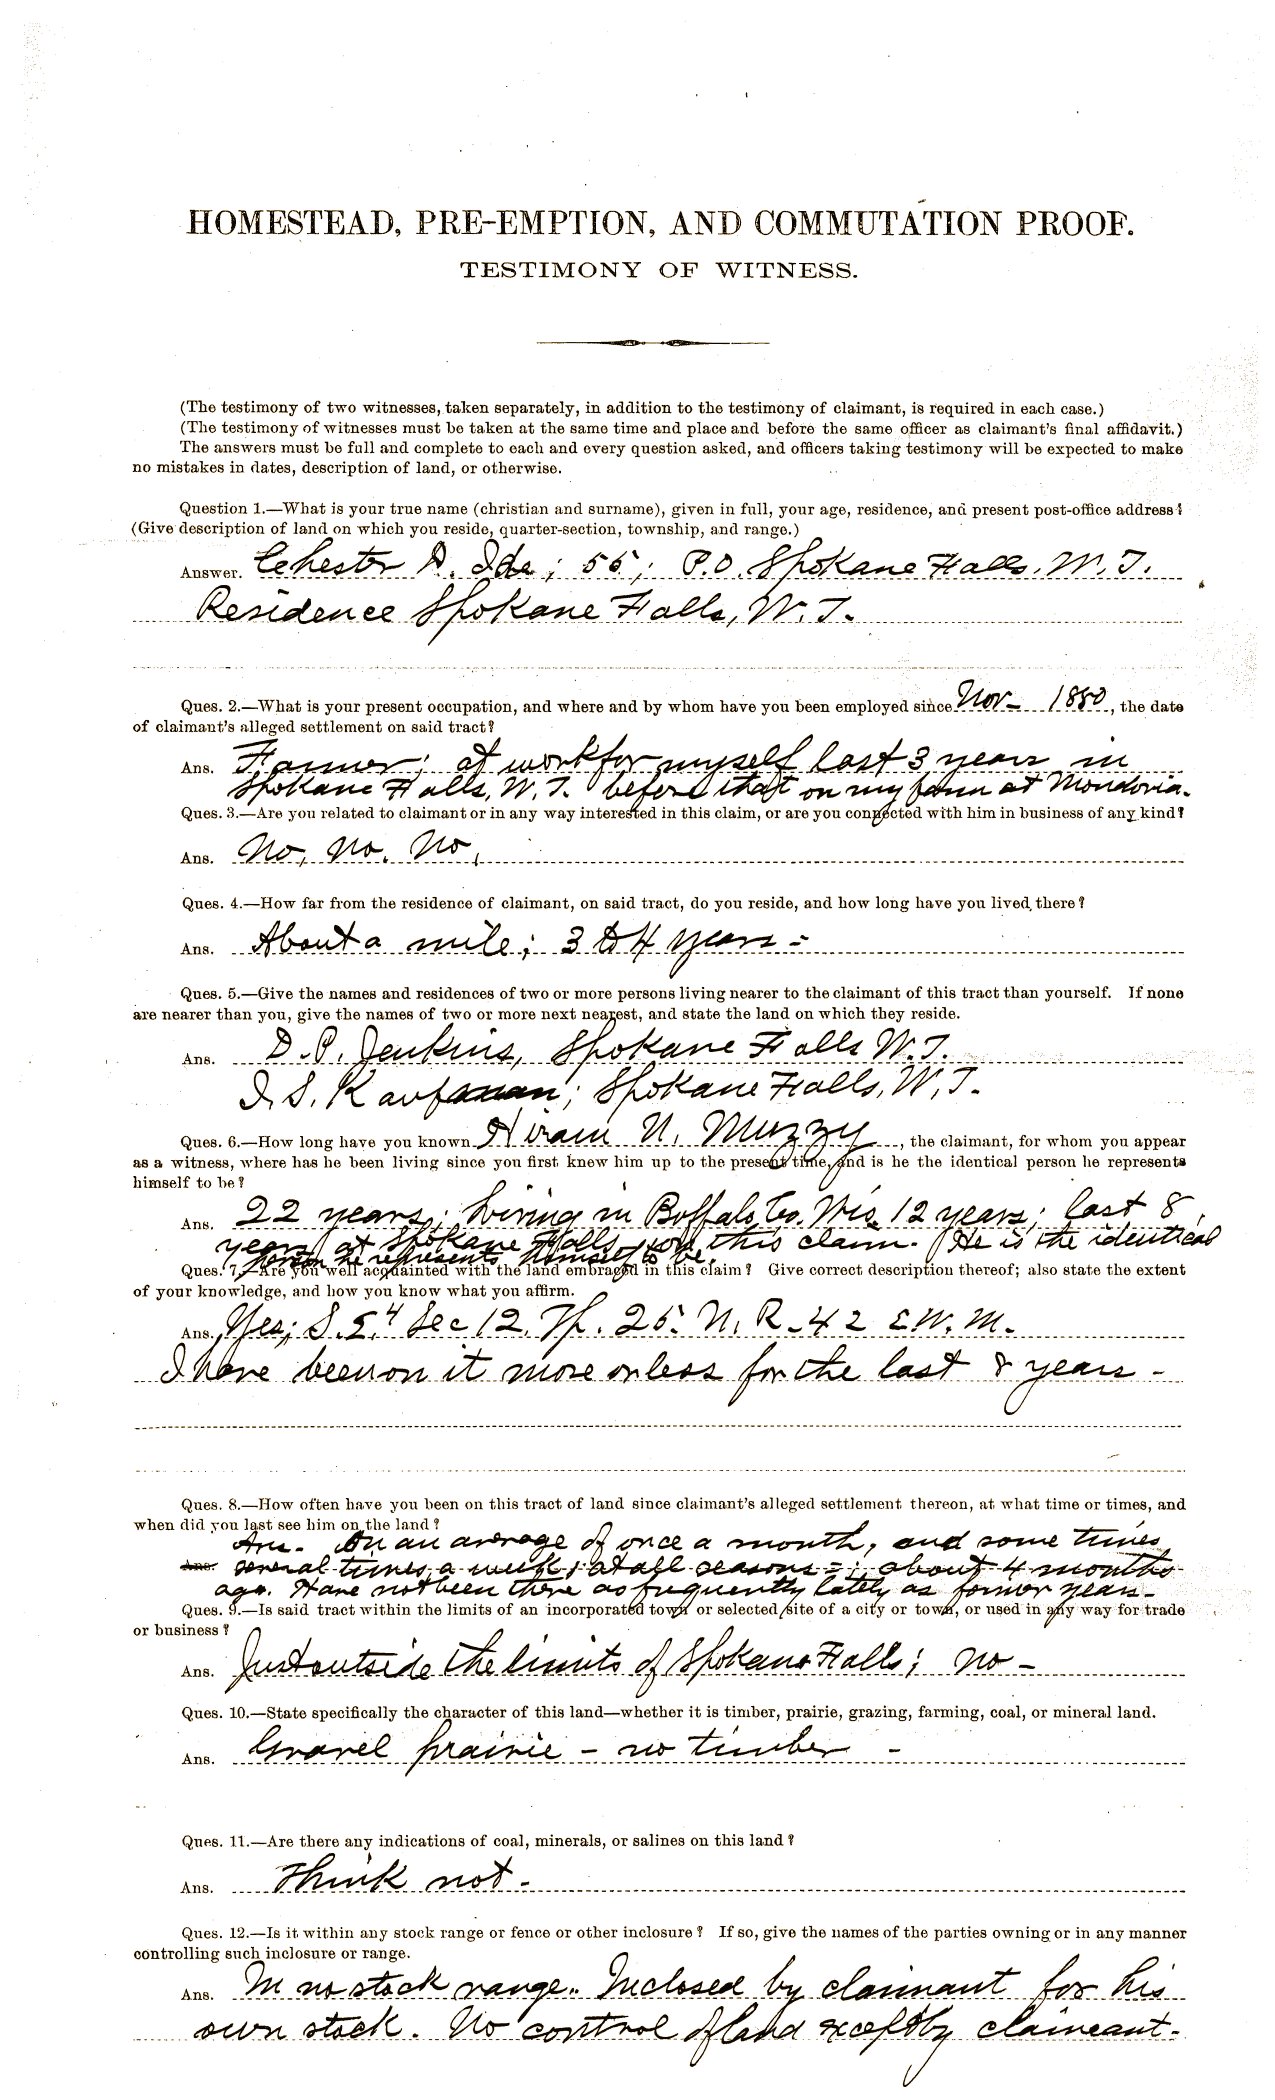 HOMESTEAD, PRE-EMPTION, AND COMMUTATION PROOF.
TESTIMONY OF WITNESS.
(The testimony of two witnesses, taken separately, in addition to the testimony of claimant, is required in each case.)
(The testimony of witnesses must be taken at the same time and place and before the same officer as claimant's final affidavit.)
The answers must be full and complete to each and every question asked, and officers taking testimony will be expected to make
no mistakes in dates, description of land, or otherwise.
Question 1.—What is your true name (christian and surname), given in full, your age, residence, and present post-office address?
(Give description of land on which you reside, quarter-section, township, and range.)
Answer. Chester D. Ide; 55; P.O. Spokane Falls, W. T.
Residence Spokane Falls, W. T.
Ques. 2.—What is your present occupation, and where and by whom have you been employed since Nov- 1880, the date
of claimant's alleged settlement on said tract?
Ans. Farmer; at work for myself last 3 years in
Spokane Falls, W. T. before that on my farm at Mondovia.
Ques. 3.—Are you related to claimant or in any way interested in this claim, or are you connected with him in business of any kind?
Ans. No, No. No,
Ques. 4.—How far from the residence of claimant, on said tract, do you reside, and how long have you lived there?
Ans. About a mile; 3 to 4 years -
Ques. 5.—Give the names and residences of two or more persons living nearer to the claimant of this tract than yourself. If none
are nearer than you, give the names of two or more next nearest, and state the land on which they reside.
Ans. D. P. Jenkins, Spokane Falls W. T.
I. S. Kaufman; Spokane Falls, W, T.
Ques. 6.—How long have you known Hiram N. Muzzy, the claimant, for whom you appear
as a witness, where has he been living since you first knew him up to the present time, and is he the identical person he represents
himself to be?
Ans. 22 years; living in Buffalo Co. Wis. 12 years; last 8
years at Spokane Falls, on this claim. He is the identical
person he represents himself to be.
Ques. 7.—Are you well acquainted with the land embraced in this claim? Give correct description thereof; also state the extent
of your knowledge, and how you know what you affirm.
Ans. Yes; S. E. 4 Sec 12, Tp. 25. N. R. 42 E. W. M.
I have been on it more or less for the last 8 years -
Ques. 8.—How often have you been on this tract of land since claimant's alleged settlement thereon, at what time or times, and
when did you last see him on the land?
Ans. On an average of once a month, and some times
Ans. several times a week; at all seasons =; about 4 months
ago. Have not been there as frequently lately as former years -
Ques. 9.—Is said tract within the limits of an incorporated town or selected site of a city or town, or used in any way for trade
or business?
Ans. Just outside the limits of Spokane Falls; no -
Ques. 10.—State specifically the character of this land—whether it is timber, prairie, grazing, farming, coal, or mineral land.
Ans. Gravel prairie - no timber -
Ques. 11.—Are there any indications of coal, minerals, or salines on this land?
Ans. Think not -
Ques. 12.—Is it within any stock range or fence or other inclosure? If so, give the names of the parties owning or in any manner
controlling such inclosure or range.
Ans. In no stock range. Inclosed by claimant for his
own stock. No control of land except by claimant -